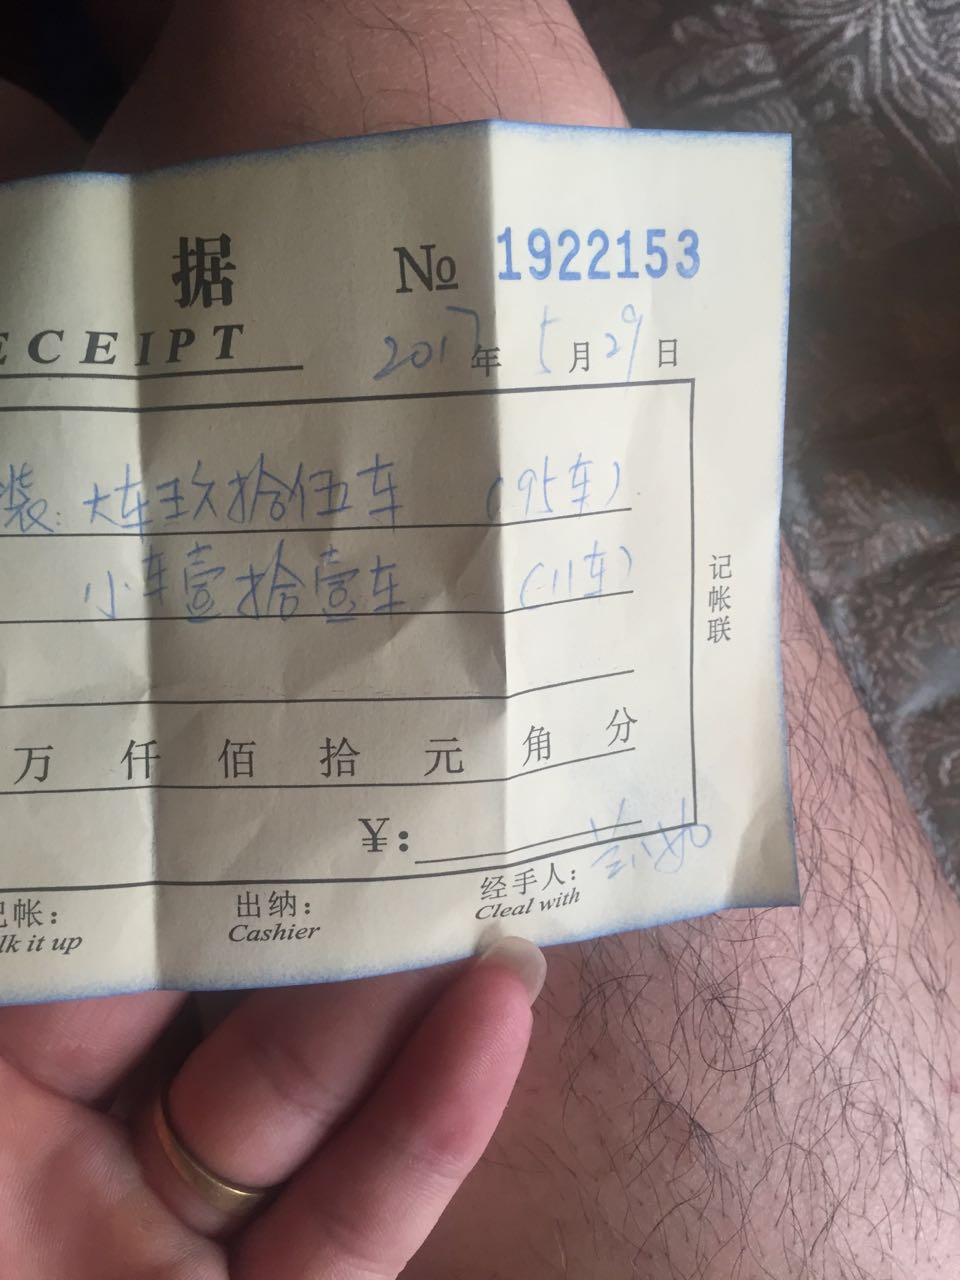 据 № 1922153
ECEIPT 2017年5月29日
装:大车玖拾伍车 (95车)
小车壹拾壹车 (11车)
记帐联
万 仟 佰 拾 元 角 分
¥:
记帐: 出纳: 经手人:
lk it up Cashier Cleal with